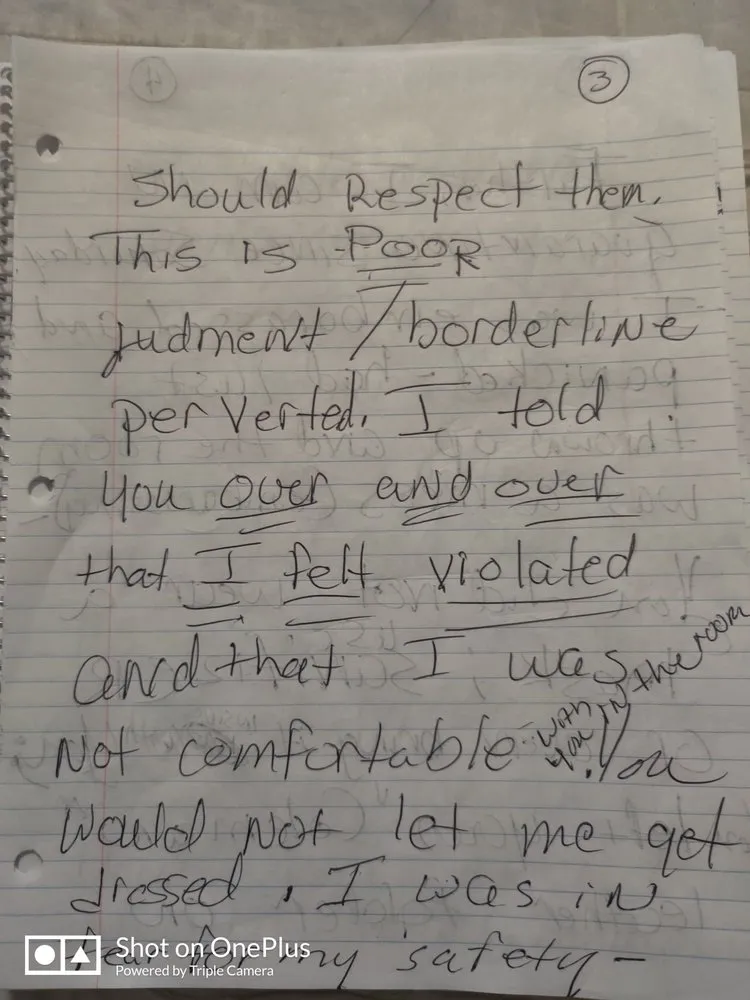 3
Should Respect them.
This is POOR
judment/borderline
perverted. I told
you over and over
that I felt violated
and that I was
Not comfortable with you in the room. You
would Not let me get
dressed. I was in
fear for my safety-
Shot on OnePlus
Powered by Triple Camera